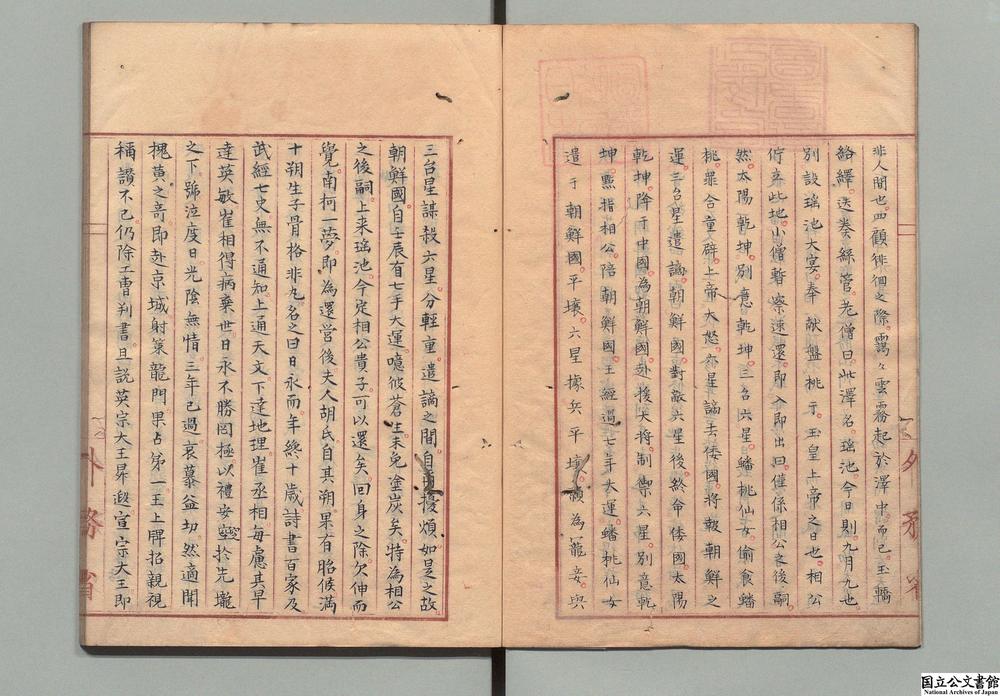 非人間也四顧徘徊之際靄々雲霧起於澤中而已玉轎
絡繹迭奏絲管老僧曰此澤名瑤池今日則九月九也
別設瑤池大宴奉献盤桃于玉皇上帝之日也相公
佇立此地小僧暫察速還即入即出曰僅係相公之後嗣
然太陽乾坤別意乾坤三台六星蟠桃仙女偷食蟠
桃罪合重辟上帝大怒六星謫去倭國將報朝鮮之
運三台星遣謫朝鮮國對敵六星後終命倭國太陽
乾坤降于中國為朝鮮國赴援天将制禦六星別意乾
坤點指相公陪朝鮮國王經過七年大運蟠桃仙女
遣于朝鮮國平壌六星據兵平壌 為寵妾與
三台星謀殺六星分輕重遣謫之間自 擾煩如是之故
朝鮮國自壬辰有七年大運噫彼蒼生未免塗炭矣特為相公
之後嗣上来瑤池今定相公貴子可以還矣回身之際欠伸而
覺南柯一夢即為還営後夫人胡氏自其朔果有胎候満
十朔生子骨格非凡名之曰日永而年終十歳詩書百家及
武經七史無不通知上通天文下達地理崔丞相毎慮其早
達英敏崔相得病棄世日永不勝罔極以禮安窆於先壠
之下號泣度日光陰無情三年已過哀慕益切然適聞
槐黄之奇即赴京城射策龍門果占第一王上牌招親視
稱讃不已仍除工曹判書且説英宗大王昇遐宣宗大王即
外務省
外務省
国立公文書館
National Archives of Japan